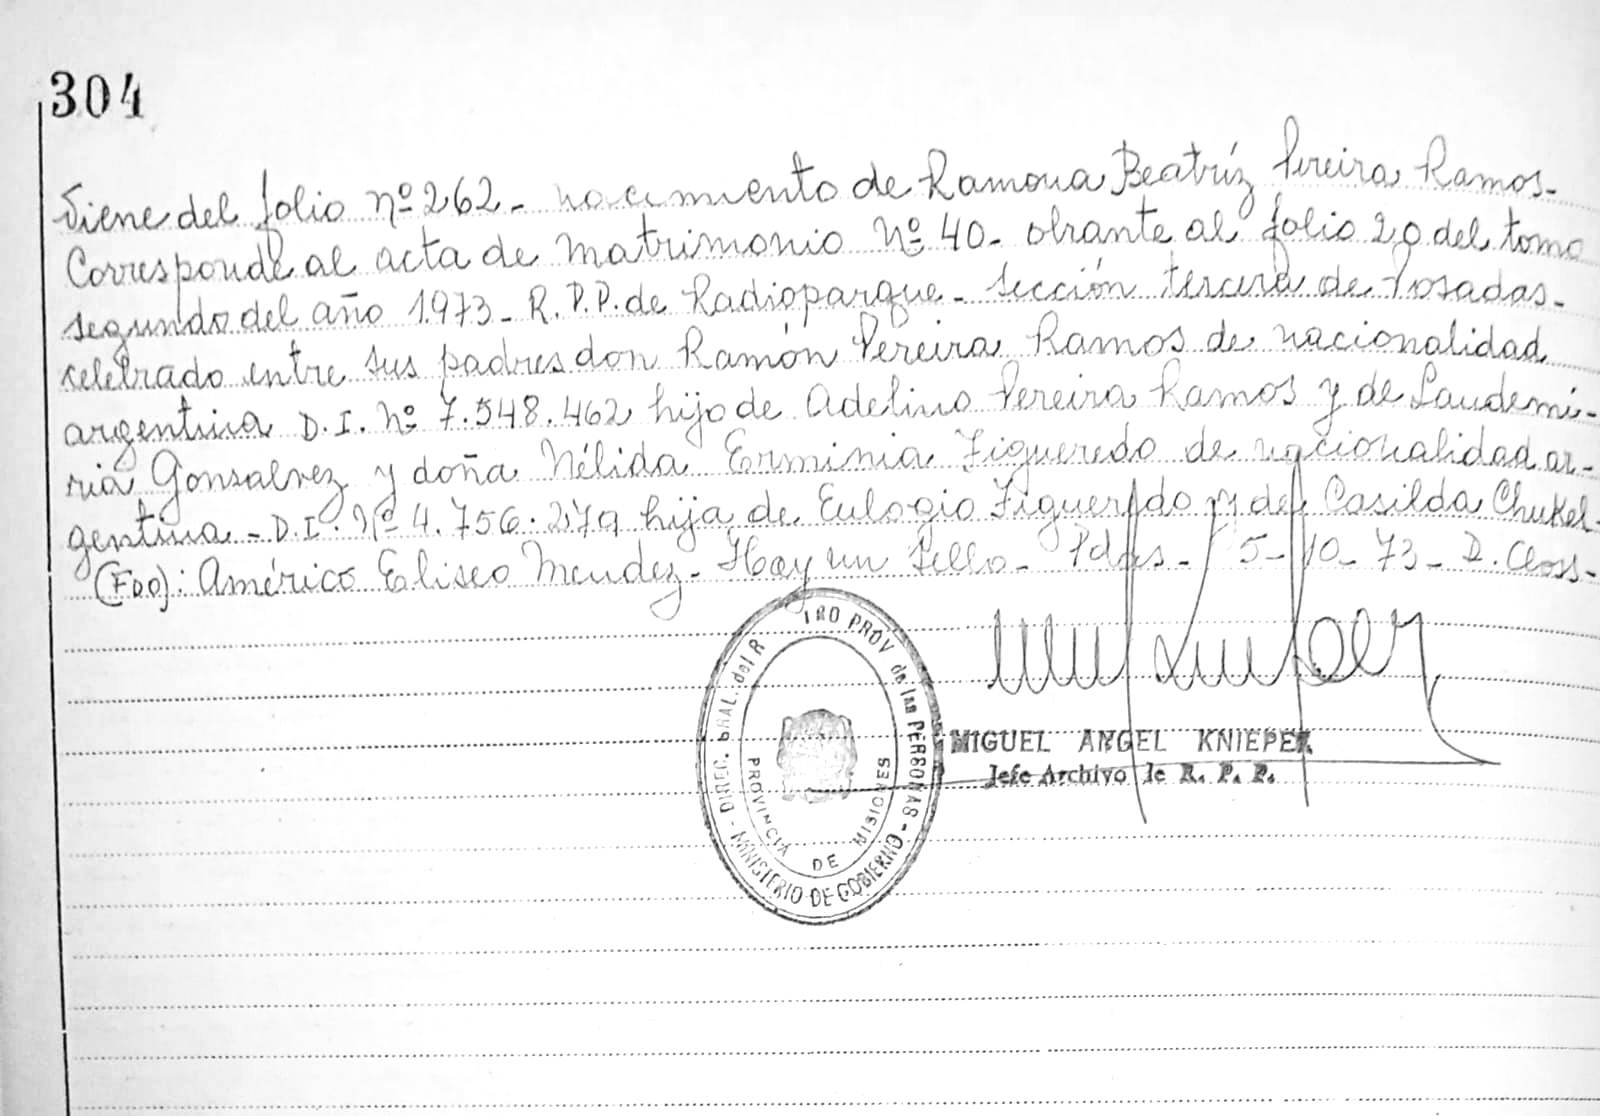 304
Viene del folio nº 262 - nacimiento de Ramona Beatríz Pereira Ramos.-
Corresponde al acta de matrimonio Nº 40 - obrante al folio 20 del tomo
segundo del año 1973 - R.P.P. de Radioparque - Sección tercera de Posadas.-
celebrado entre sus padres don Ramón Pereira Ramos de nacionalidad
argentina D.I. Nº 7.548.462 hijo de Adelino Pereira Ramos y de Laudemi-
ria Gonsalvez y doña Nélida Erminia Figueredo de nacionalidad ar-
gentina - D.I. Nº 4.756.279 hija de Eulogio Figueredo y de Casilda Chukel-
(FDO): Américo Eliseo Mendez - Hay un Sello - Pdas - 5-10-73 - D. Closs-
DIREC. GRAL. del R TRO PROV de las PERSONAS - MINISTERIO DE GOBIERNO -
PROVINCIA DE MISIONES
MIGUEL ANGEL KNIEPER
Jefe Archivo de R. P. P.